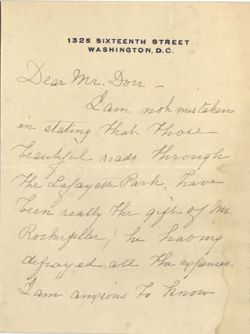 1325 SIXTEENTH STREET
WASHINGTON, D.C.
Dear Mr. Dorr -
I am not mistaken
in stating that those
beautiful roads through
the Lafayette Park, have
been really the gift of Mr.
Rockefeller; he having
defrayed all the expenses.
I am anxious to know